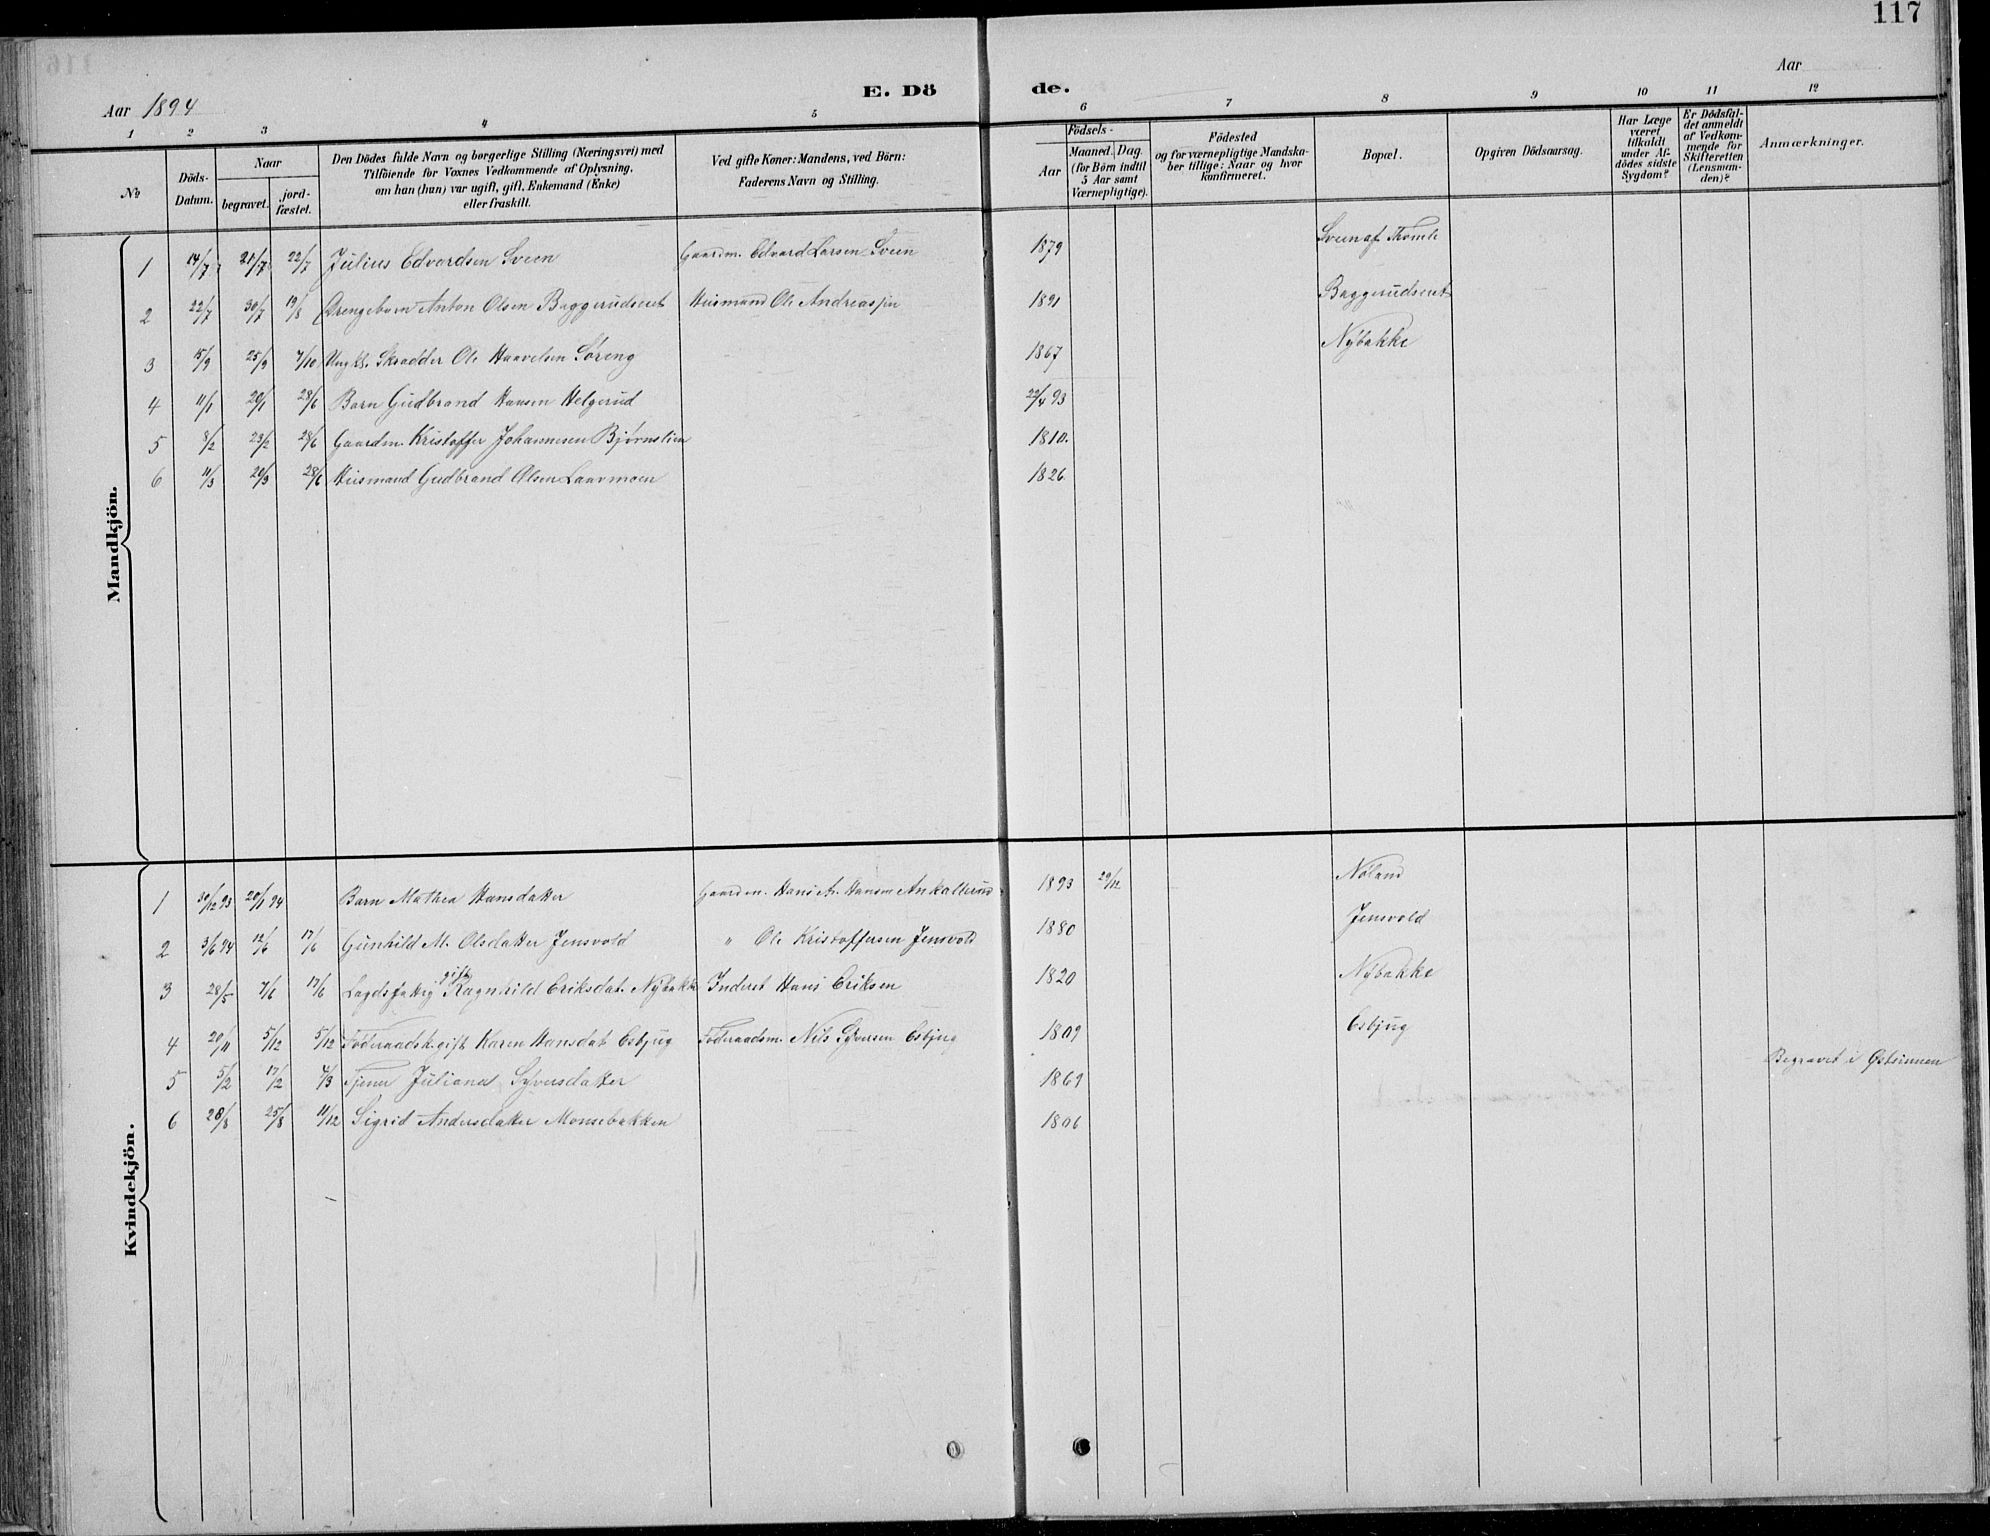 117
Aar 1894
E. Dö de.
Aar
1 2 3 4 5 6 7 8 9 10 11 12
No
Döds-Datum.
Naar
begravet.
jord-fæstet.
Den Dödes fulde Navn og borgerlige Stilling (Næringsvei) med
Tilföiende for Voxnes Vedkommende af Oplysning,
om han (hun) var ugift, gift, Enkemand (Enke)
eller fraskilt.
Ved gifte Koner: Mandens, ved Börn:
Faderens Navn og Stilling.
Födsels-
Aar
Maaned. Dag.
(for Börn indtil
5 Aar samt
Værnepligtige).
Födested
og for værnepligtige Mandska-
ber tillige: Naar og hvor
konfirmeret.
Bopæl.
Opgiven Dödsaarsag.
Har Læge
været
tilkaldt
under Af-
dödes sidste
Sygdom?
Er Dödsfal-
det anmeldt
af Vedkom-
mende for
Skifteretten
(Lensman-
den)?
Anmærkninger.
Mandkjön.
1 14/7 21/7 22/7 Julius Edvardsen Sveen Gaardm. Edvard Larsen Sveen 1879 Sveen af
2 22/7 30/7 19/8 Drengebarn Anton Olsen Baggerudseret Husmand Ole Andreassen 1891 Baggerudseret
3 15/9 25/9 7/10 Ungkl. Skrædder Ole Haavelsen Søreng 1867 Nybakke
4 11/1 20/1 28/6 Barn Gudbrand Hansen Helgerud 22/4 93
5 8/2 23/2 28/6 Gaardm. Kristoffer Johannesen Bjørnslien 1810.
6 11/3 20/3 28/6 Husmand Gudbrand Olsen Laavmoen 1826
Kvindekjön.
1 30/12 93 20/1 94 Barn Mathea Hansdatter Gaardm. Hans A. Hansen Ankallerud 1893 29/12 Nøland
2 3/6 94 12/6 17/6 Gunhild M. Olsdatter Jensvold " Ole Kristoffersen Jensvold 1880 Jensvold
3 28/5 7/6 17/6 Lægdsfattig gift Ragnhild Eriksdat. Nybakke Inderst Hans Eriksen 1820 Nybakke
4 20/11 5/12 5/12 Føderaadsk. gift Karen Hansdat Esbjug Føderaadsm. Nils Syversen Esbjug 1809 Esbjug
5 5/2 17/2 4/3 Tjener Juliane Syversdatter 1869 Begravet i Østsinnen
6 28/8 25/8 11/12 Sigrid Andersdatter Monsebakken 1806